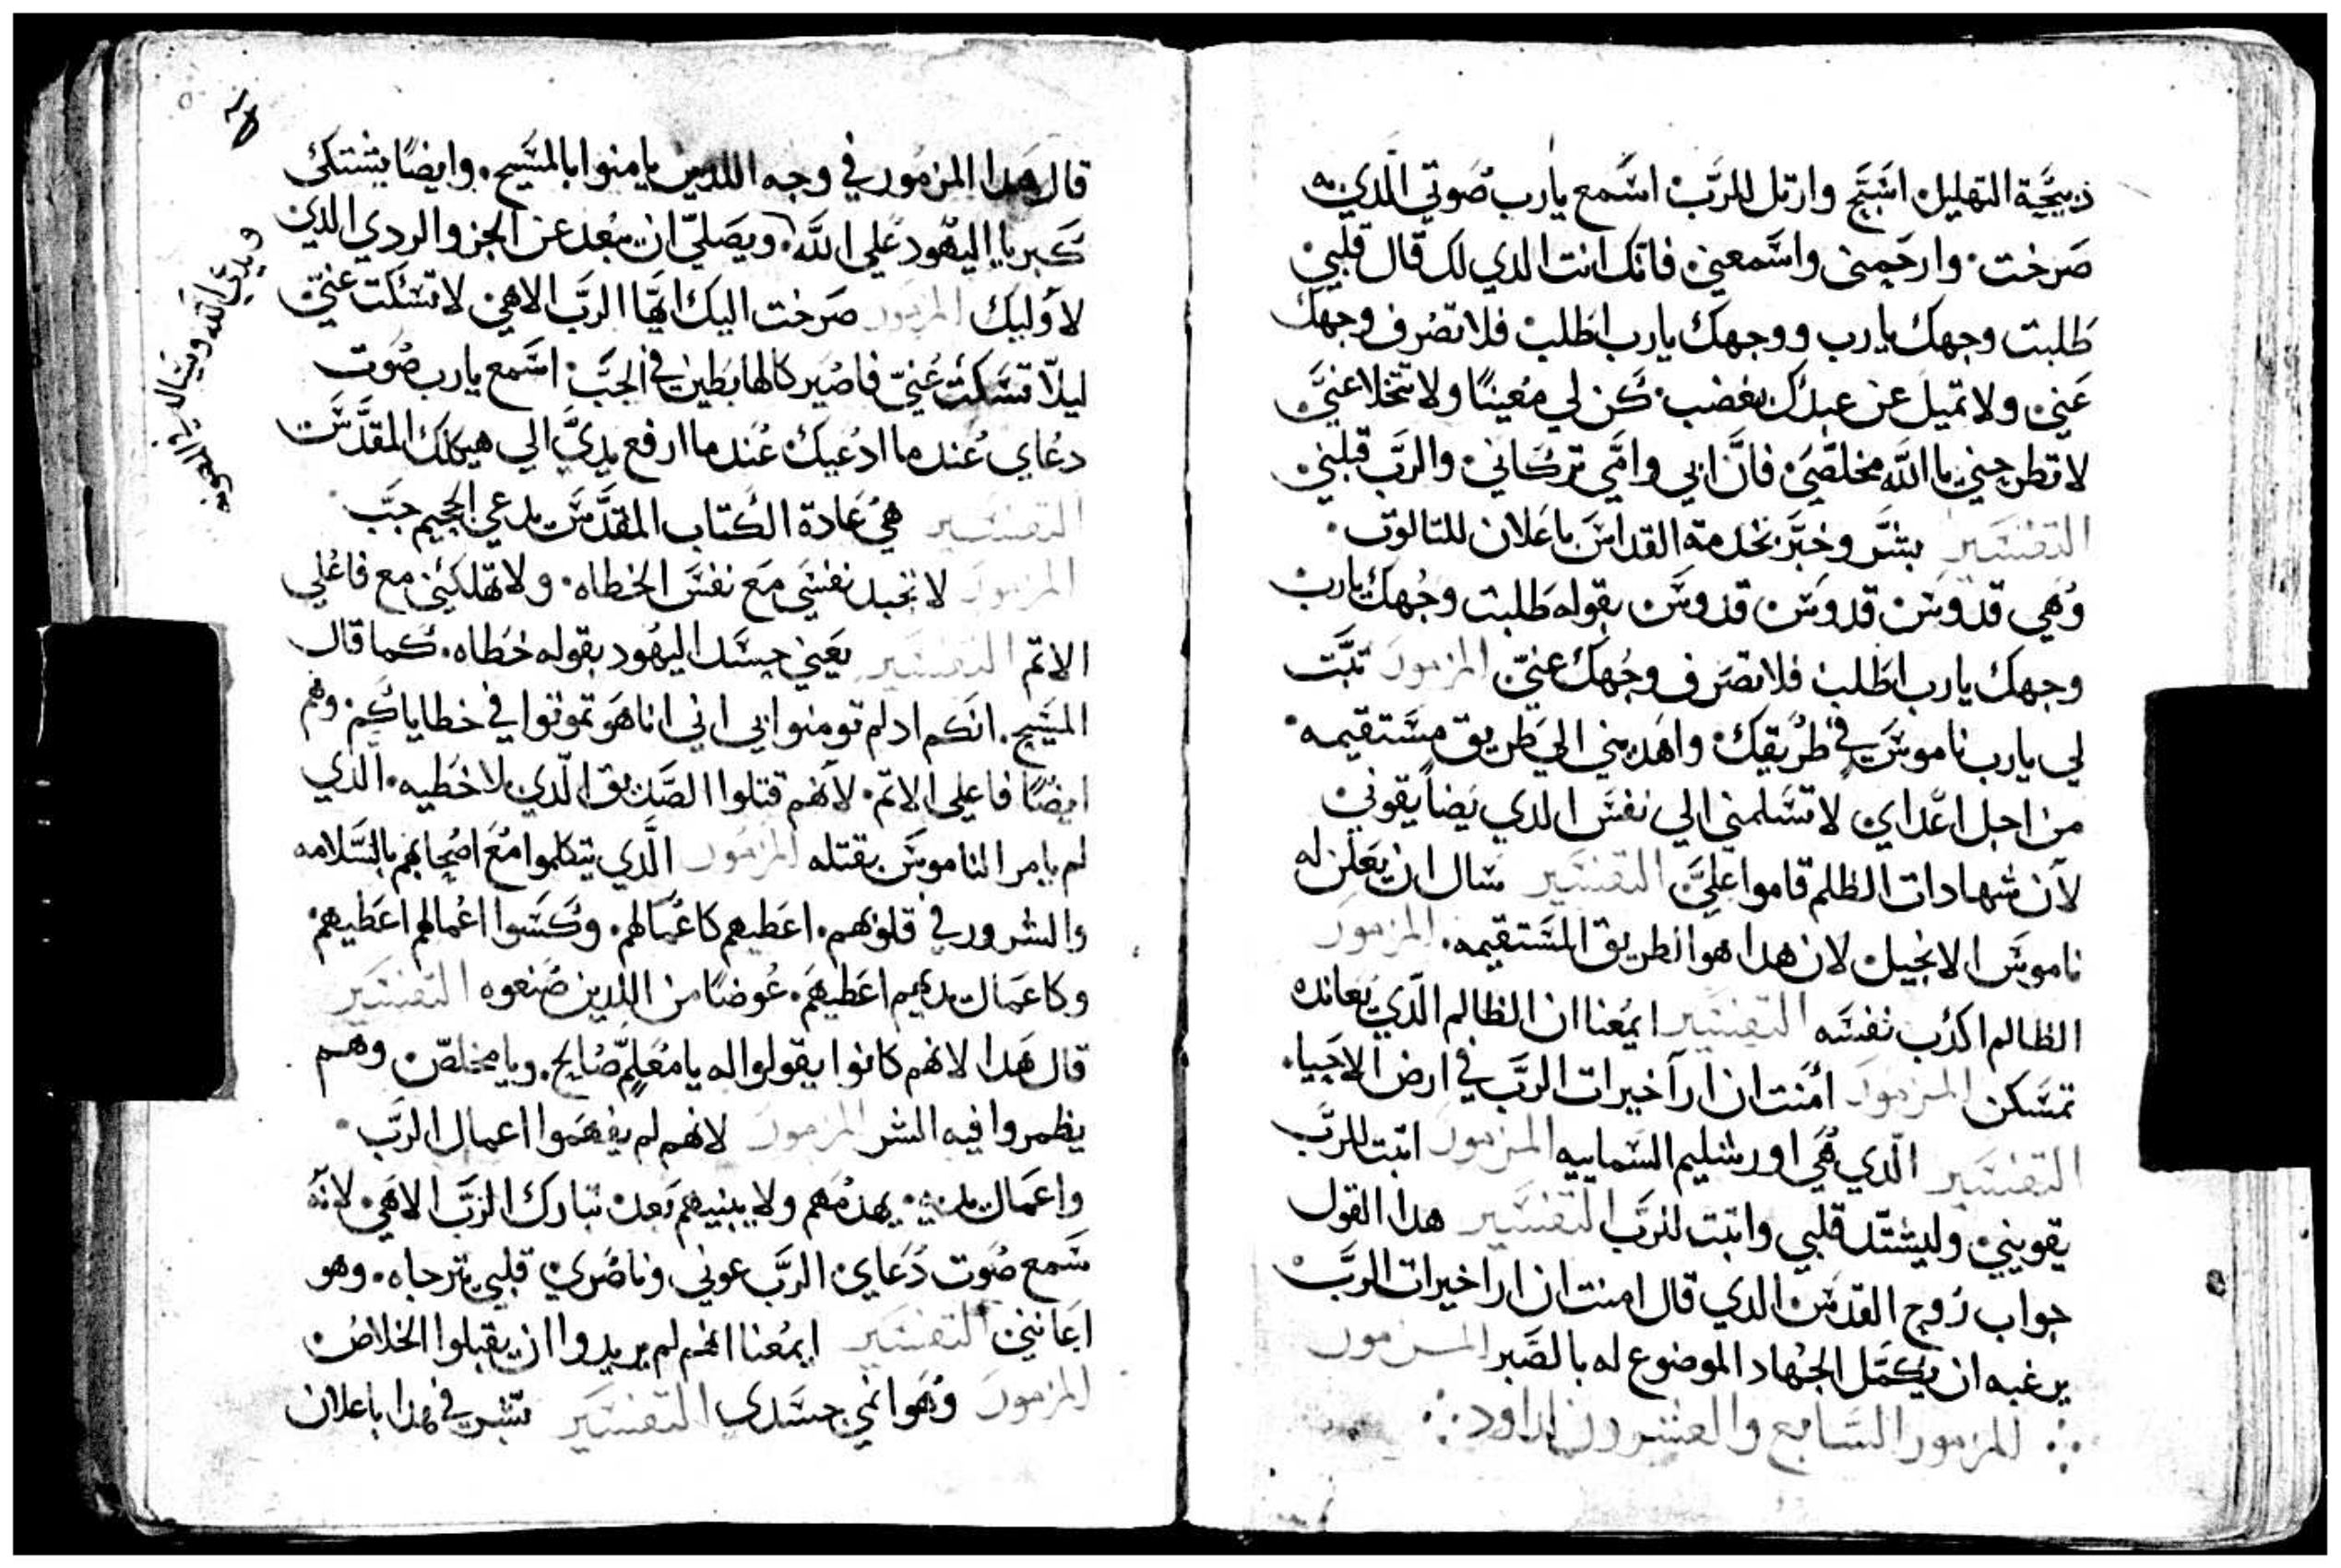 ذبيحة التهليل اسبح وارتل للرب اسمع يارب صوتي الدي به
صرخت وارحمني واسمعني فانك انت الدي لك قال قلبي
طلبت وجهك يارب ووجهك يارب اطلب فلا تصرف وجهك
عني ولا تميل عن عبدك بغضب كن لي معينا ولا تتخلا عني
لا تطرحني يا الله مخلصي فان ابي وامي تركاني والرب قبلني
التفسير بشر وخبر بخدمة القداس باعلان للتالوت
وهي قدوس قدوس قدوس بقوله طلبت وجهك يارب
وجهك يارب اطلب فلا تصرف وجهك عني المزمور تبت
لي يارب ناموس في طريقك واهديني الي طريق مستقيمه
من اجل اعداي لا تسلمني الي نفس الدي يضايقوني
لان شهادات الظلم قاموا علي التفسير سال ان يعلن له
ناموس الانجيل لان هدا هو الطريق المستقيمه المزمور
الظالم اكدب نفسه التفسير ايمعنا ان الظالم الدي يعانده
تمسكن المزمور امنت ان ارا خيرات الرب في ارض الاحيا
التفسير الدي هي اورشليم السماييه المزمور اتبت للرب
يقويني وليشتد قلبي واتبت للرب التفسير هدا القول
جواب روح القدس الدي قال امنت ان ارا خيرات الرب
يرغبه ان يكمل الجهاد الموضوع له بالصبر المزمور
المزمور السابع والعشرون لداود
قال هدا المزمور في وجه اللدين يامنوا بالمسيح وايضا يشتكي
كبريا اليهود علي الله ويصلي ان يبعد عن الجز والردي الدين
لاوليك المزمور صرخت اليك ايها الرب الاهي لا تسكت عني
ليلا تسكت عني فاصير كالهابطين في الجب اسمع يارب صوت
دعاي عندما ادعيك عندما ارفع يدي الي هيكلك المقدس
التفسير هي عادة الكتاب المقدس يدعي الجحيم جب
المزمور لا تجبد نفسي مع نفس الخطاه ولا تهلكني مع فاعلي
الاتم التفسير يعني جسد اليهود بقوله خطاه كما قال
المسيح انكم اد لم تومنوا بي اني انا هو تموتوا في خطاياكم وهم
ايضا فاعلي الاتم لانهم قتلوا الصديق الدي لا خطيه الدي
لم يامر الناموس بقتله المزمور الدي يتكلموا مع اصحابهم بالسلامه
والشرور في قلوبهم اعطيهم كاعمالهم وكسوا اعمالهم اعطيهم
وكاعمال يديهم اعطيهم عوضا من اللدين صنعوه التفسير
قال هدا لانهم كانوا يقولوا له يا معلم صالح ويا مخلص وهم
يظمروا فيه الشر المزمور لانهم لم يفهموا اعمال الرب
واعمال يديه يهدمهم ولا يبنيهم بعد تبارك الرب الاهي لانه
سمع صوت دعاي الرب عوني وناصري قلبي ترجاه وهو
اعانني التفسير ايمعنا انهم لم يريدوا ان يقبلوا الخلاص
المزمور وهوا نمي جسدي التفسير تبشر في هدا باعلان